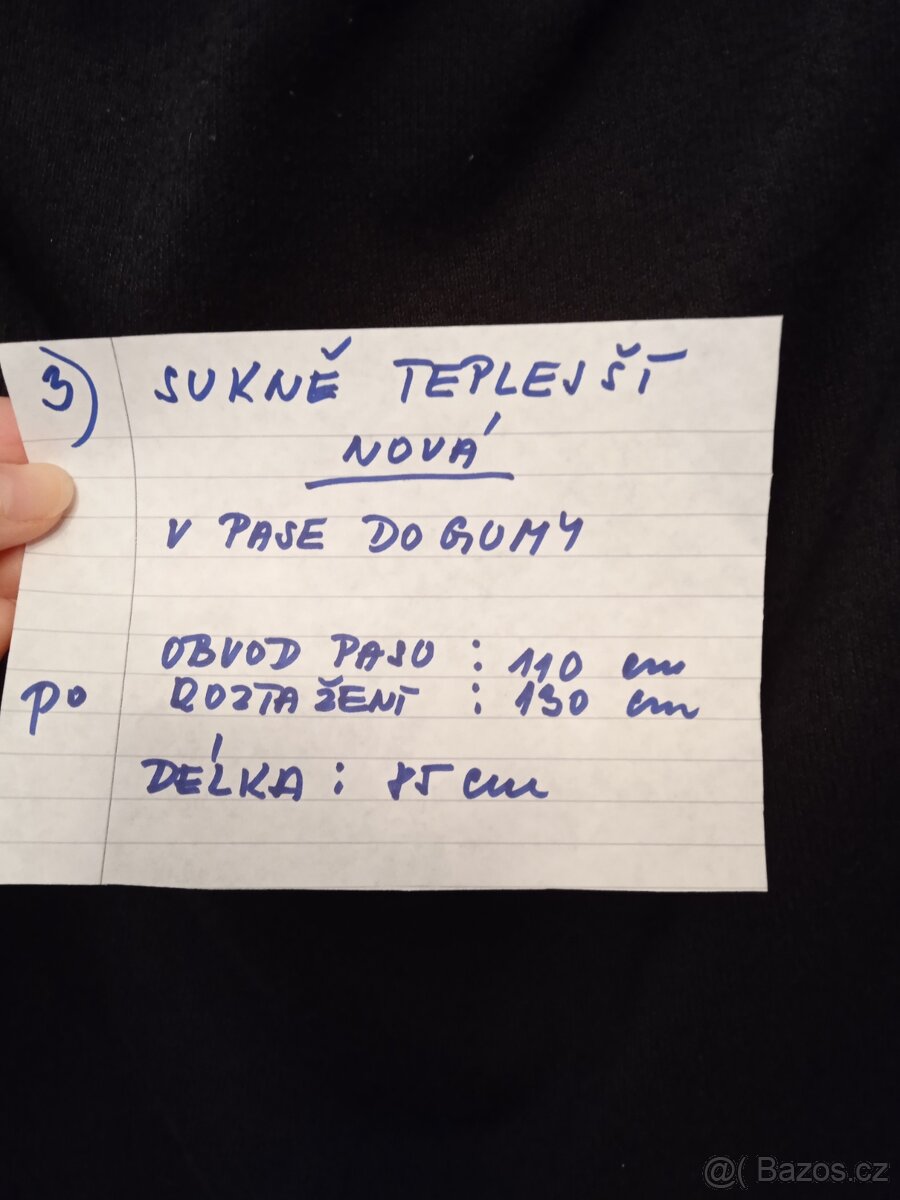 3) SUKNĚ TEPLEJŠÍ
NOVÁ
V PASE DO GUMY
OBVOD PASU : 110 cm
po ROZTAŽENÍ : 130 cm
DÉLKA : 85 cm
@( Bazos.cz